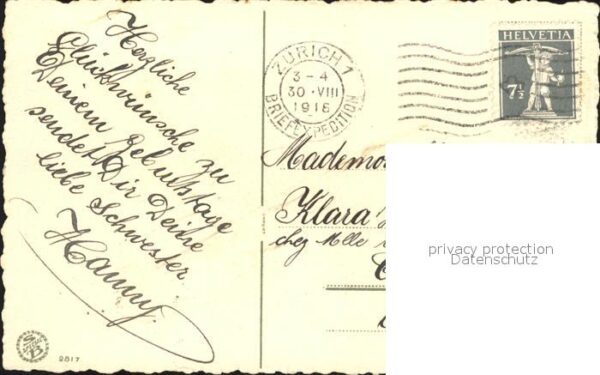 Herzliche
Glückwünsche zu
Deinem Geburtstage
sendet Dir Deine
liebe Schwester
Hanny.
ZÜRICH 1
3-4
30.VIII
1918
BRIEFEXPEDITION
HELVETIA
7½
Mademo
Klara
chez Mlle
privacy protection
Datenschutz
S B
2817